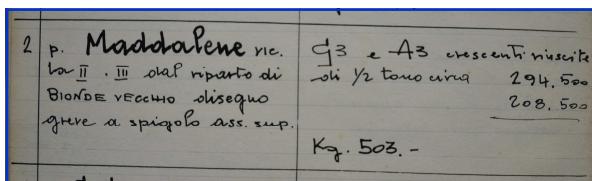 2 p. Maddalene vic.
la II . III dal riparto di
BIONDE VECCHIO disegno
greve a spigolo ass. sup.
G3 e A3 crescenti riuscite
di 1/2 tono circa 294,500
208,500
Kg. 503.-